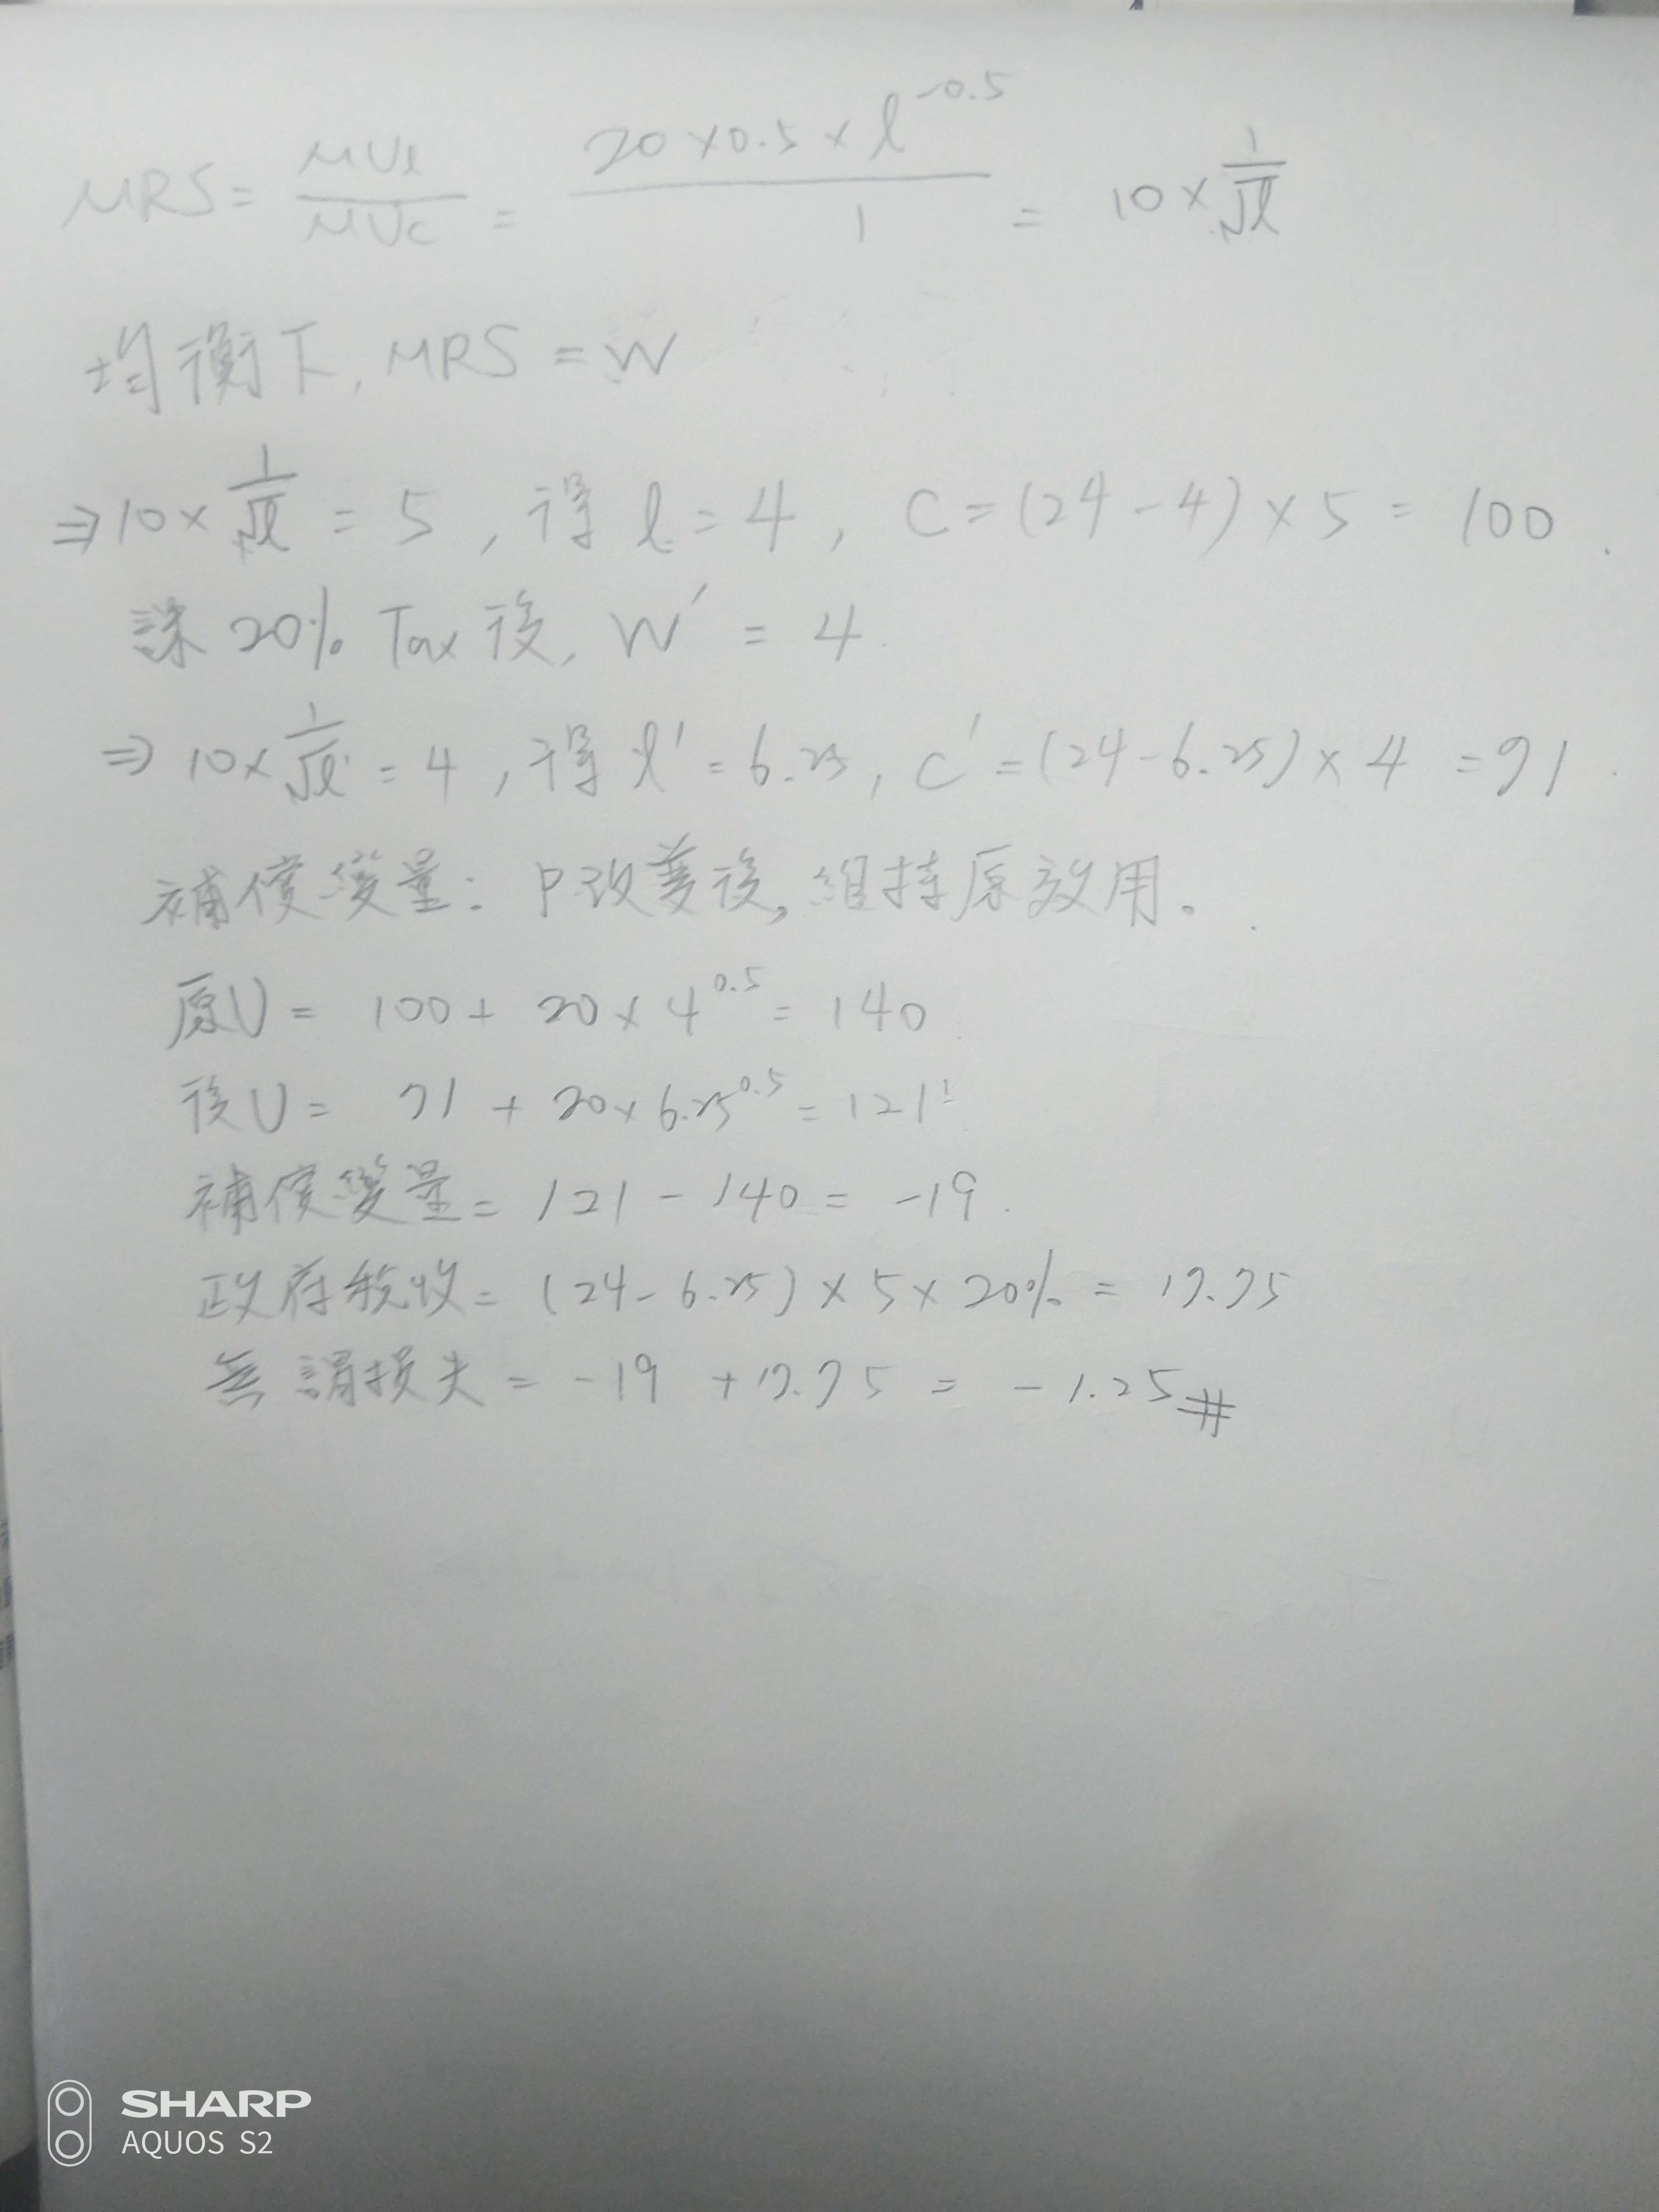 MRS = MUl / MUc = 20×0.5×l^-0.5 / 1 = 10× 1/√l
均衡下, MRS = W
⇒ 10× 1/√l = 5 , 得 l = 4 , C = (24-4)×5 = 100 .
課 20% Tax 後, W' = 4 .
⇒ 10× 1/√l' = 4 , 得 l' = 6.25 , C' = (24-6.25)×4 = 71 .
補償變量: P改變後, 維持原效用。
原U = 100 + 20×4^0.5 = 140
後U = 71 + 20×6.25^0.5 = 121
補償變量 = 121 - 140 = -19 .
政府稅收 = (24-6.25)×5×20% = 17.75
無謂損失 = -19 + 17.75 = -1.25 #
SHARP
AQUOS S2